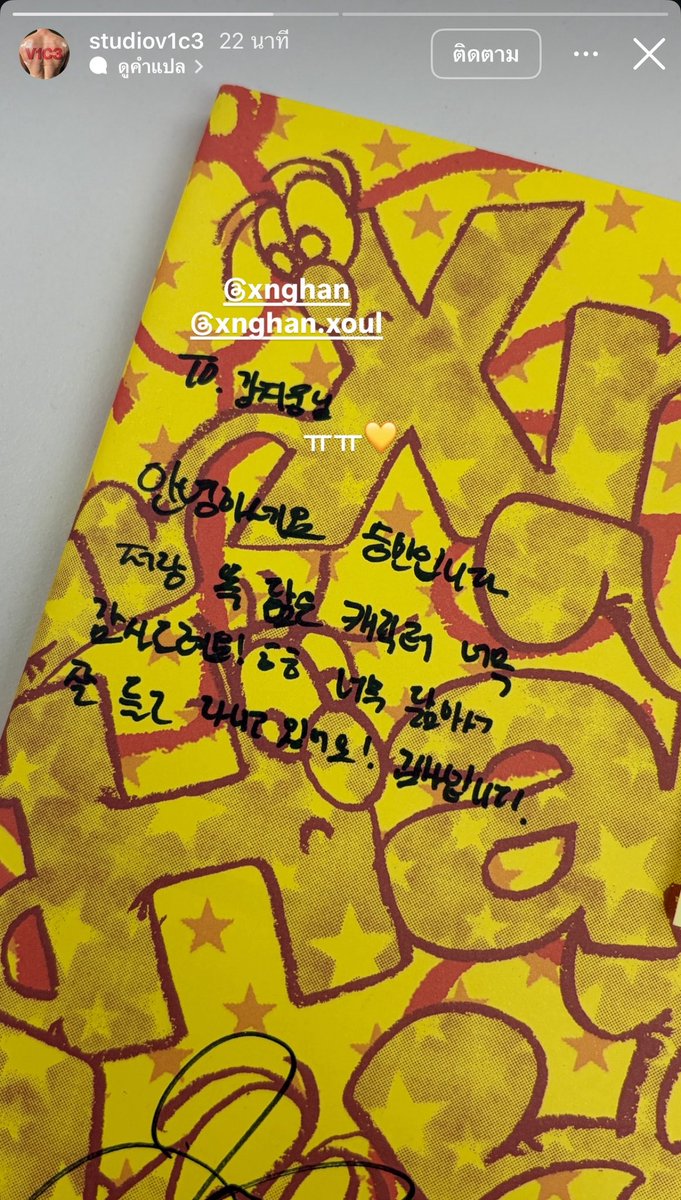 studiov1c3 22 นาที
ดูคำแปล
ติดตาม
@xnghan
@xnghan.xoul
To. 강지웅님
ㅠㅠ💛
안녕하세요 승한입니다
저랑 똑 닮은 캐릭터 너무
감사드려요! 요즘 너무 닮아서
잘 들고 다니고 있어요! 최고입니다!
Xn
ha